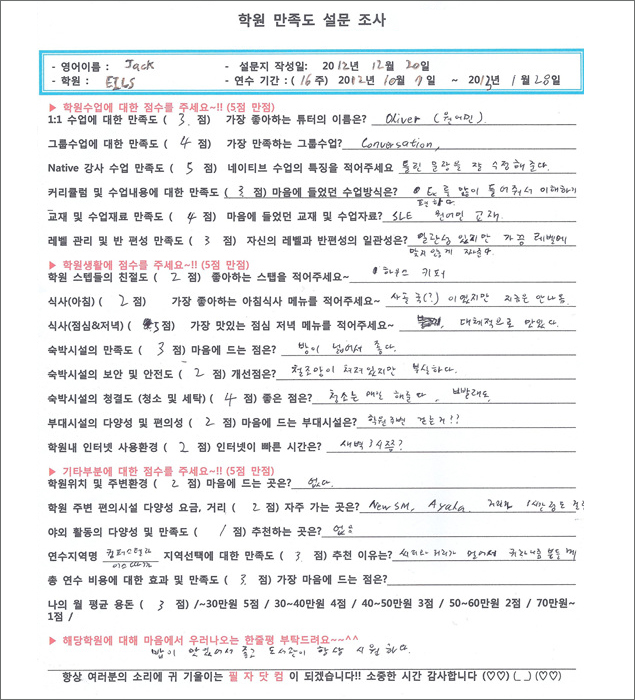 학원 만족도 설문 조사
- 영어이름 : Jack - 설문지 작성일: 2012년 12월 20일
- 학원 : EILS - 연수 기간 : (16주) 2012년 10월 9일 ~ 2013년 1월 28일
▶ 학원수업에 대한 점수를 주세요~!! (5점 만점)
1:1 수업에 대한 만족도 ( 3. 점) 가장 좋아하는 튜터의 이름은? Oliver (원어민)
그룹수업에 대한 만족도 ( 4 점) 가장 만족하는 그룹수업? Conversation,
Native 강사 수업 만족도 ( 5 점) 네이티브 수업의 특징을 적어주세요 틀린 문장을 잘 수정해준다.
커리큘럼 및 수업내용에 대한 만족도 ( 3. 점) 마음에 들었던 수업방식은? Ex를 많이 들어줘서 이해하기
편하다
교재 및 수업재료 만족도 ( 4 점) 마음에 들었던 교재 및 수업자료? SLE 원어민 교재.
레벨 관리 및 반 편성 만족도 ( 3 점) 자신의 레벨과 반편성의 일관성은? 일관성 있지만 가끔 레벨에
맞지 않게
▶ 학원생활에 점수를 주세요~!! (5점 만점)
학원 스텝들의 친절도 ( 2 점) 좋아하는 스탭을 적어주세요~ 하우스 키퍼
식사(아침) ( 2 점) 가장 좋아하는 아침식사 메뉴를 적어주세요~ 국(?) 이었지만 지금은 안나옴
식사(점심&저녁) ( 3 점) 가장 맛있는 점심 저녁 메뉴를 적어주세요~ 대체적으로 맛있다.
숙박시설의 만족도 ( 3 점) 마음에 드는 점은? 방이 넓어서 좋다.
숙박시설의 보안 및 안전도 ( 2 점) 개선점은? 철조망이 쳐져있지만 부실하다.
숙박시설의 청결도 (청소 및 세탁) ( 4 점) 좋은 점은? 청소는 매일 해준다, 빨래도
부대시설의 다양성 및 편의성 ( 2 점) 마음에 드는 부대시설은? 학원주변 걷는거!?
학원내 인터넷 사용환경 ( 2 점) 인터넷이 빠른 시간은? 새벽 3 4쯤?
▶ 기타부분에 대한 점수를 주세요~!! (5점 만점)
학원위치 및 주변환경 ( 2 점) 마음에 드는 곳은? 없다.
학원 주변 편의시설 다양성 요금, 거리 ( 2 점) 자주 가는 곳은? New SM, Ayala. 1시간정도
야외 활동의 다양성 및 만족도 ( 1 점) 추천하는 곳은? 없음
연수지역명 지역선택에 대한 만족도 ( 3 점) 추천 이유는? 거리가 멀어서
총 연수 비용에 대한 효과 및 만족도 ( 3 점) 가장 마음에 드는 점은?
나의 월 평균 용돈 ( 3 점) /~30만원 5점 / 30~40만원 4점 / 40~50만원 3점 / 50~60만원 2점 / 70만원~
1점 /
▶ 해당학원에 대해 마음에서 우러나오는 한줄평 부탁드려요~~^^
밥이 맛있어서 좋고 도서관이 항상 시원하다.
항상 여러분의 소리에 귀 기울이는 필 자 닷 컴 이 되겠습니다!! 소중한 시간 감사합니다 (♡♡) (_ _) (♡♡)